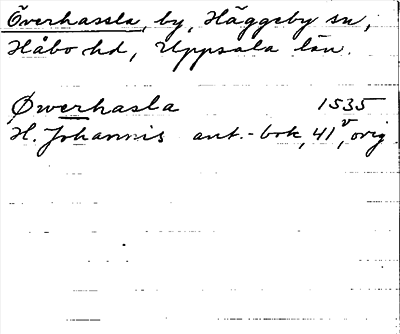 Överhassla, by, Häggeby sn,
Håbo hd, Uppsala län.
Øwerhasla 1535
H. Johannis ant.-bok, 41v, orig